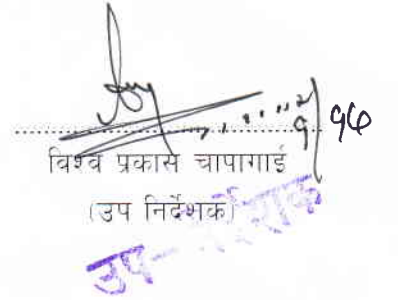 विश्व प्रकास चापागाई
(उप निर्देशक)
उप-निर्देशक